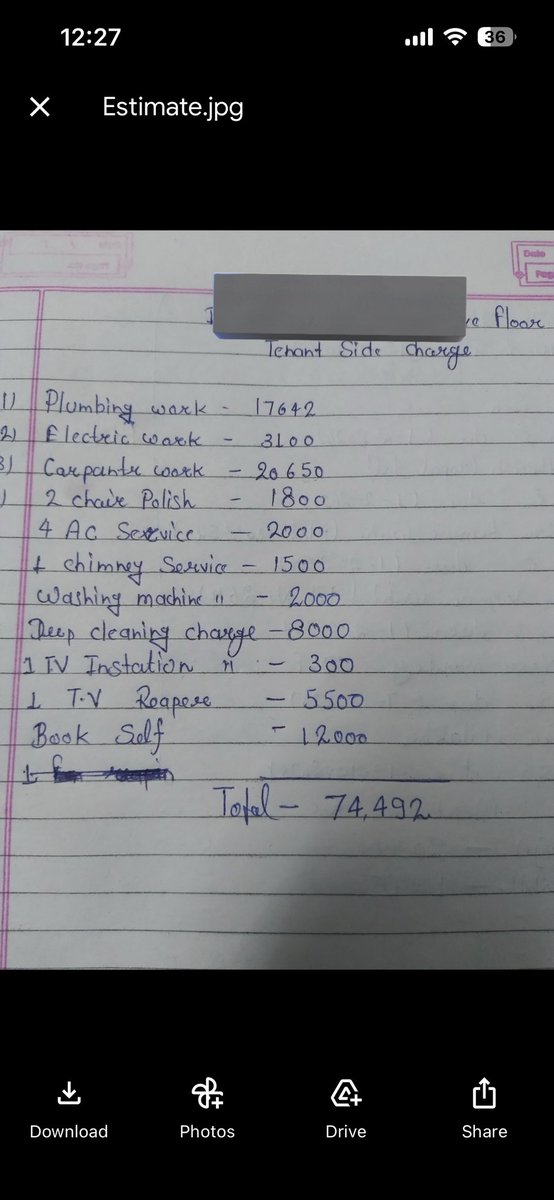 12:27
36
Estimate.jpg
Date
Pag
floor
Tenant Side Charge
1) Plumbing work - 17642
2) Electric work - 3100
3) Carpantr work - 20650
) 2 chair Polish - 1800
4 AC Service - 2000
1 chimney Service - 1500
Washing machine " - 2000
Deep cleaning charge - 8000
1 TV Instation " - 300
1 T.V Reapere - 5500
Book Self - 12000
1
Total - 74,492
Download
Photos
Drive
Share